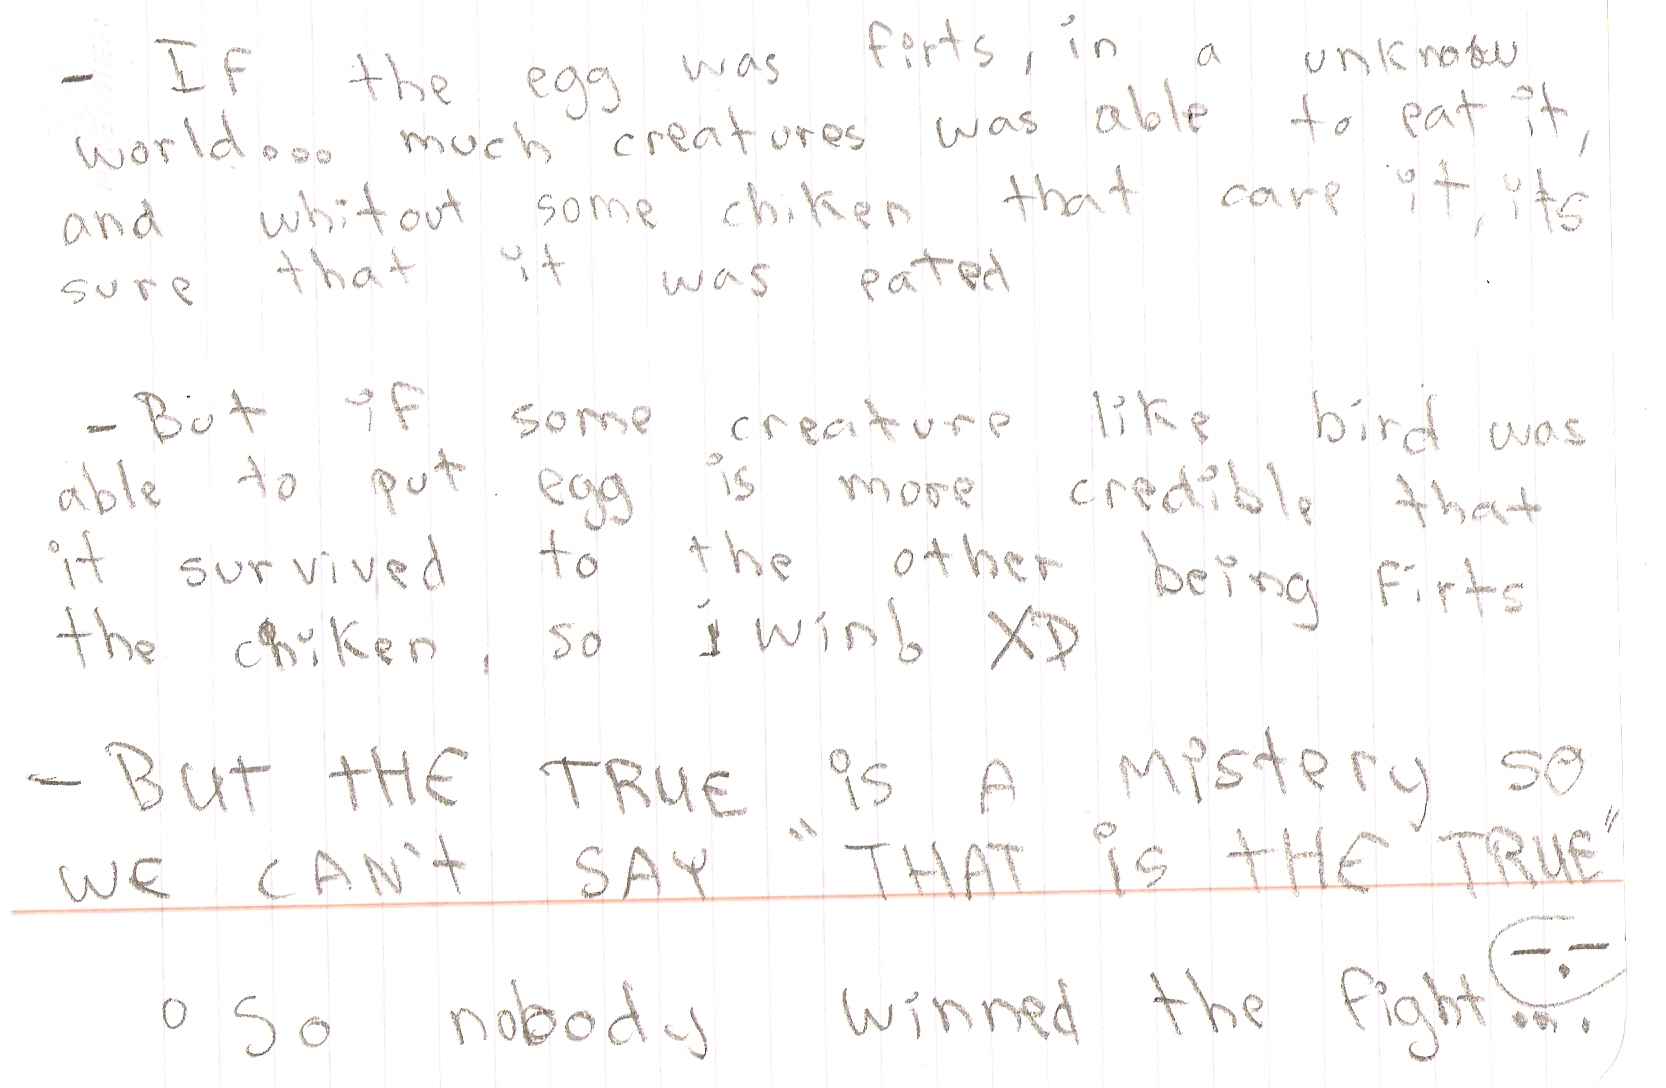 - If the egg was firts, in a unknow
world... much creatures was able to eat it,
and whitout some chiken that care it, its
sure that it was eated
- But if some creature like bird was
able to put egg is more credible that
it survived to the other being firts
the chiken, so i win XD
- BUT tHE TRUE is A Mistery so
WE CAN't SAY "THAT is tHE TRUE"
o So nobody winned the fight....